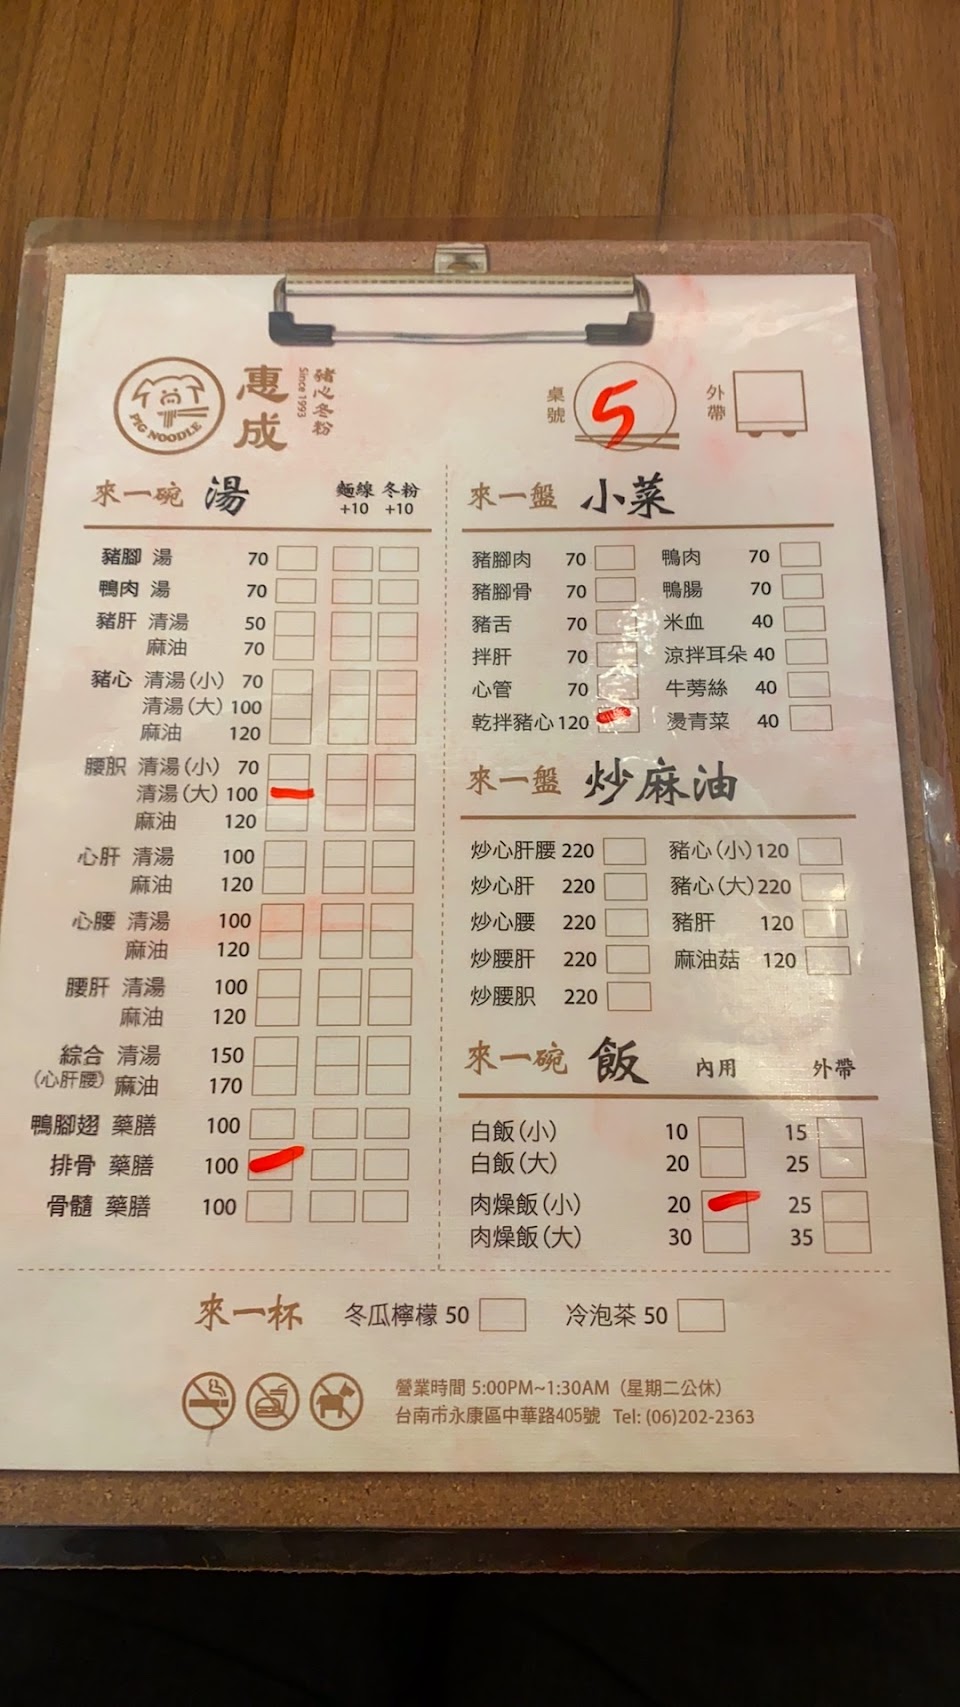 惠成
豬心冬粉
Since 1993
PIG NOODLE
桌號 5
外帶
來一碗 湯 麵線 +10 冬粉 +10
豬腳 湯 70
鴨肉 湯 70
豬肝 清湯 50
麻油 70
豬心 清湯(小) 70
清湯(大) 100
麻油 120
腰脤 清湯(小) 70
清湯(大) 100
麻油 120
心肝 清湯 100
麻油 120
心腰 清湯 100
麻油 120
腰肝 清湯 100
麻油 120
綜合 清湯 150
(心肝腰) 麻油 170
鴨腳翅 藥膳 100
排骨 藥膳 100
骨髓 藥膳 100
來一盤 小菜
豬腳肉 70 鴨肉 70
豬腳骨 70 鴨腸 70
豬舌 70 米血 40
拌肝 70 涼拌耳朵 40
心管 70 牛蒡絲 40
乾拌豬心 120 燙青菜 40
來一盤 炒麻油
炒心肝腰 220 豬心(小) 120
炒心肝 220 豬心(大) 220
炒心腰 220 豬肝 120
炒腰肝 220 麻油菇 120
炒腰脤 220
來一碗 飯 內用 外帶
白飯(小) 10 15
白飯(大) 20 25
肉燥飯(小) 20 25
肉燥飯(大) 30 35
來一杯 冬瓜檸檬 50 冷泡茶 50
營業時間 5:00PM~1:30AM (星期二公休)
台南市永康區中華路405號 Tel: (06)202-2363